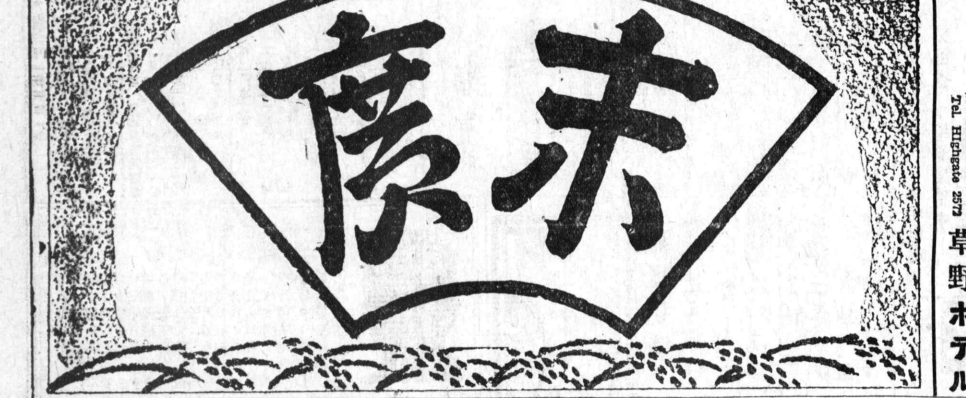 末廣
Tel. Highgate 2573
草野ホテル